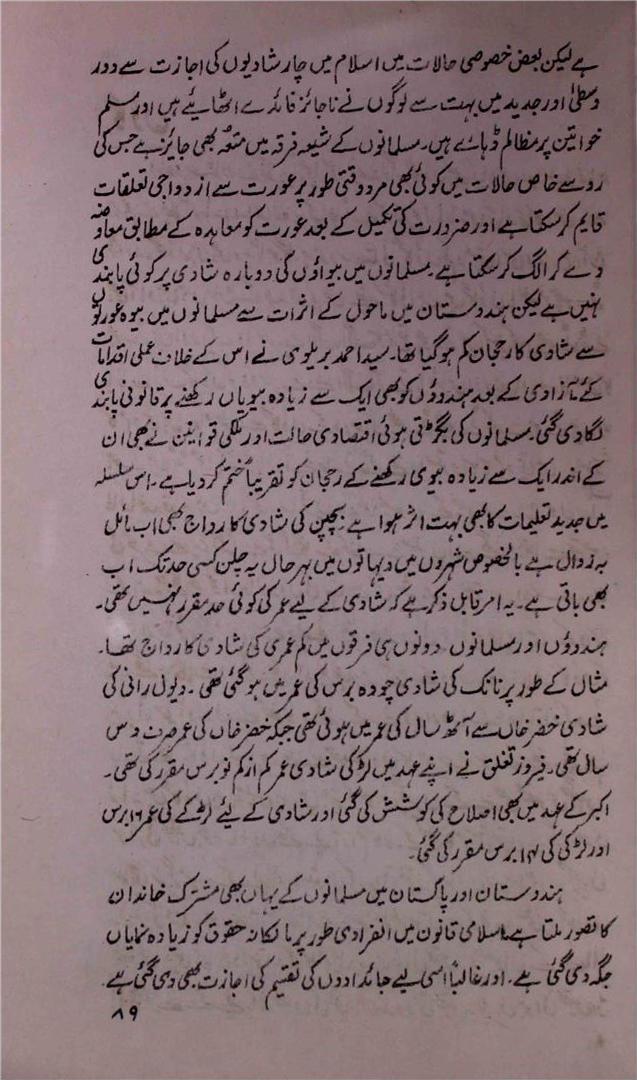 ہے لیکن بعض خصوصی حالات میں اسلام میں چار شادیوں کی اجازت سے دور
وسطیٰ اور جدید میں بہت سے لوگوں نے ناجائز فائدے اٹھائے ہیں اور مسلم
خواتین پر مظالم ڈہائے ہیں۔ مسلمانوں کے شیعہ فرقہ میں متعہ بھی جایز ہے جس کی
رو سے خاص حالات میں کوئی بھی مرد وقتی طور پر عورت سے ازدواجی تعلقات
قایم کر سکتا ہے اور ضرورت کی تکمیل کے بعد عورت کو معاہدہ کے مطابق معاوضہ
دے کر الگ کر سکتا ہے۔ مسلمانوں میں بیواؤں کی دوبارہ شادی پر کوئی پابندی
نہیں ہے لیکن ہندوستان میں ماحول کے اثرات سے مسلمانوں میں بیوہ عورتوں
سے شادی کا رجحان کم ہو گیا تھا۔ سید احمد بریلوی نے اس کے خلاف عملی اقدامات
کئے۔ آزادی کے بعد ہندوؤں کو بھی ایک سے زیادہ بیویاں رکھنے پر قانونی پابندی
لگا دی گئی۔ مسلمانوں کی بگڑتی ہوئی اقتصادی حالت اور ملکی قوانین نے بھی ان
کے اندر ایک سے زیادہ بیوی رکھنے کے رجحان کو تقریباً ختم کر دیا ہے۔ اس سلسلہ
میں جدید تعلیمات کا بھی بہت اثر ہوا ہے۔ بچپن کی شادی کا رواج بھی اب مائل
بہ زوال ہے بالخصوص شہروں میں دیہاتوں میں بہرحال یہ چلن کسی حد تک اب
بھی باقی ہے۔ یہ امر قابل ذکر ہے کہ شادی کے لیے عمر کی کوئی حد مقرر نہیں تھی۔
ہندوؤں اور مسلمانوں، دونوں ہی فرقوں میں کم عمری کی شادی کا رواج تھا۔
مثال کے طور پر نانک کی شادی چودہ برس کی عمر میں ہو گئی تھی۔ دیول رانی کی
شادی خضر خاں سے آٹھ سال کی عمر میں ہوئی تھی جبکہ خضر خاں کی عمر صرف دس
سال تھی۔ فیروز تغلق نے اپنے عہد میں لڑکی شادی عمر کم از کم نو برس مقرر کی تھی۔
اکبر کے عہد میں بھی اصلاح کی کوشش کی گئی اور شادی کے لئے لڑکے کی عمر ۱۶ برس
اور لڑکی کی ۱۴ برس مقرر کی گئی۔
ہندوستان اور پاکستان میں مسلمانوں کے یہاں بھی مشترک خاندان
کا تصور ملتا ہے۔ اسلامی قانون میں انفرادی طور پر مالکانہ حقوق کو زیادہ نمایاں
جگہ دی گئی ہے۔ اور غالباً اسی لیے جائدادوں کی تقسیم کی اجازت بھی دی گئی ہے۔
۸۹